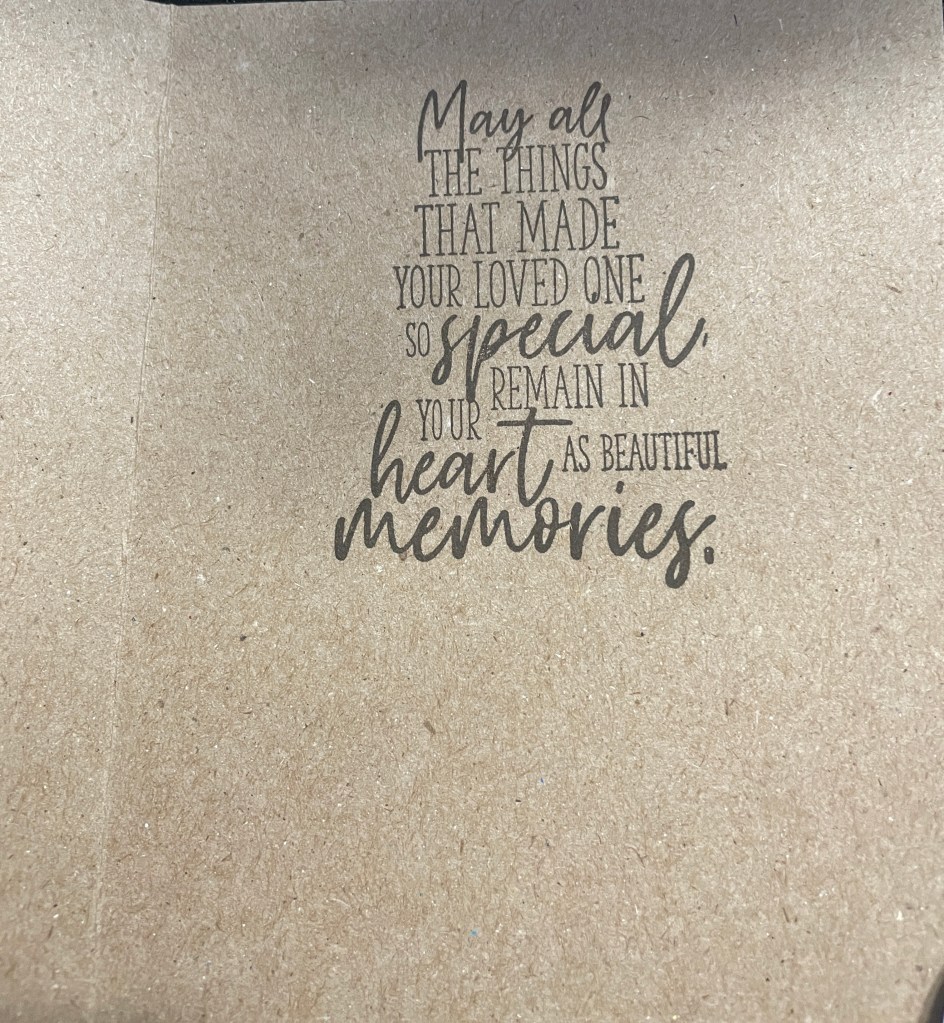 May all
THE THINGS
THAT MADE
YOUR LOVED ONE
SO special,
REMAIN IN
YOUR
heart AS BEAUTIFUL
memories.